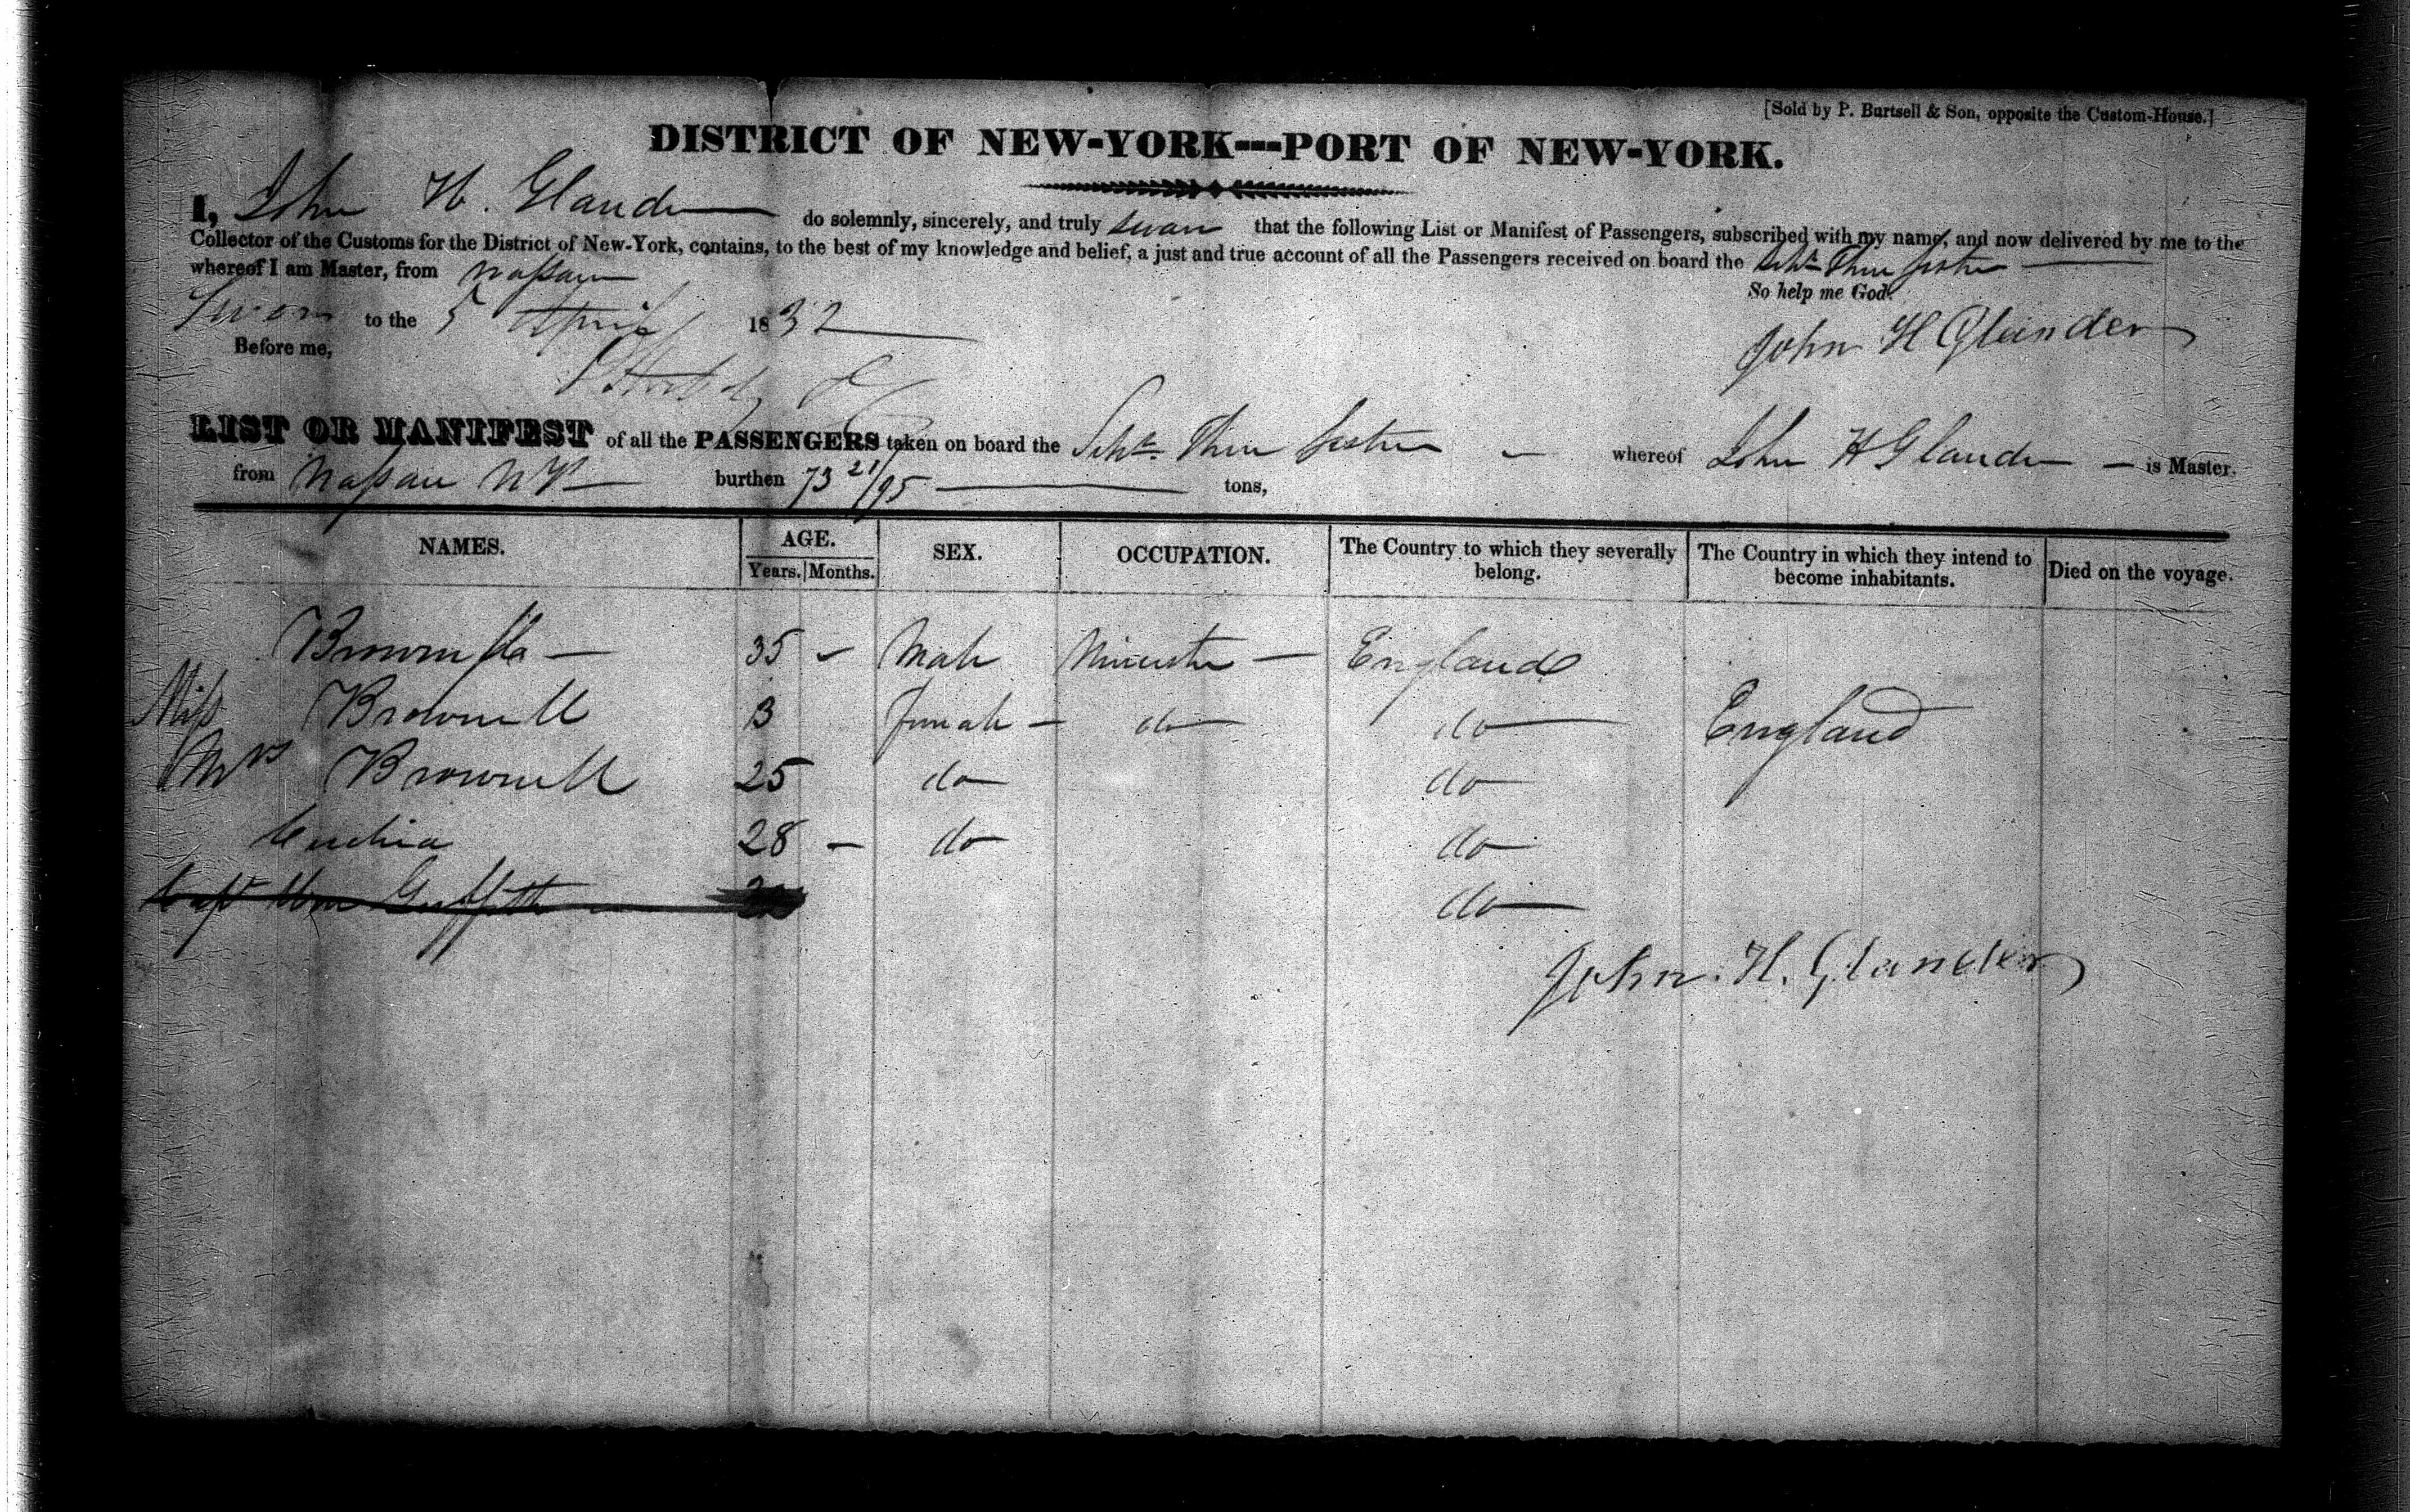 [Sold by P. Burtsell & Son, opposite the Custom-House.]
DISTRICT OF NEW-YORK---PORT OF NEW-YORK.
I, John H. Glander do solemnly, sincerely, and truly swear that the following List or Manifest of Passengers, subscribed with my name, and now delivered by me to the
Collector of the Customs for the District of New-York, contains, to the best of my knowledge and belief, a just and true account of all the Passengers received on board the Schr Three Sisters
whereof I am Master, from Nassau
So help me God.
Sworn to the 5 April 1832
John H Glander
Before me,
LIST OR MANIFEST of all the PASSENGERS taken on board the Schr Three Sisters whereof John H Glander is Master,
from Nassau NP burthen 73 21/95 tons,
NAMES. AGE. SEX. OCCUPATION. The Country to which they severally belong. The Country in which they intend to become inhabitants. Died on the voyage.
Years. Months.
35 - Male Minister England
Miss Brownell 3 Female do do England
Mrs Brownell 25 do do
28 - do do
Capt Wm Griffith do
John. H. Glander